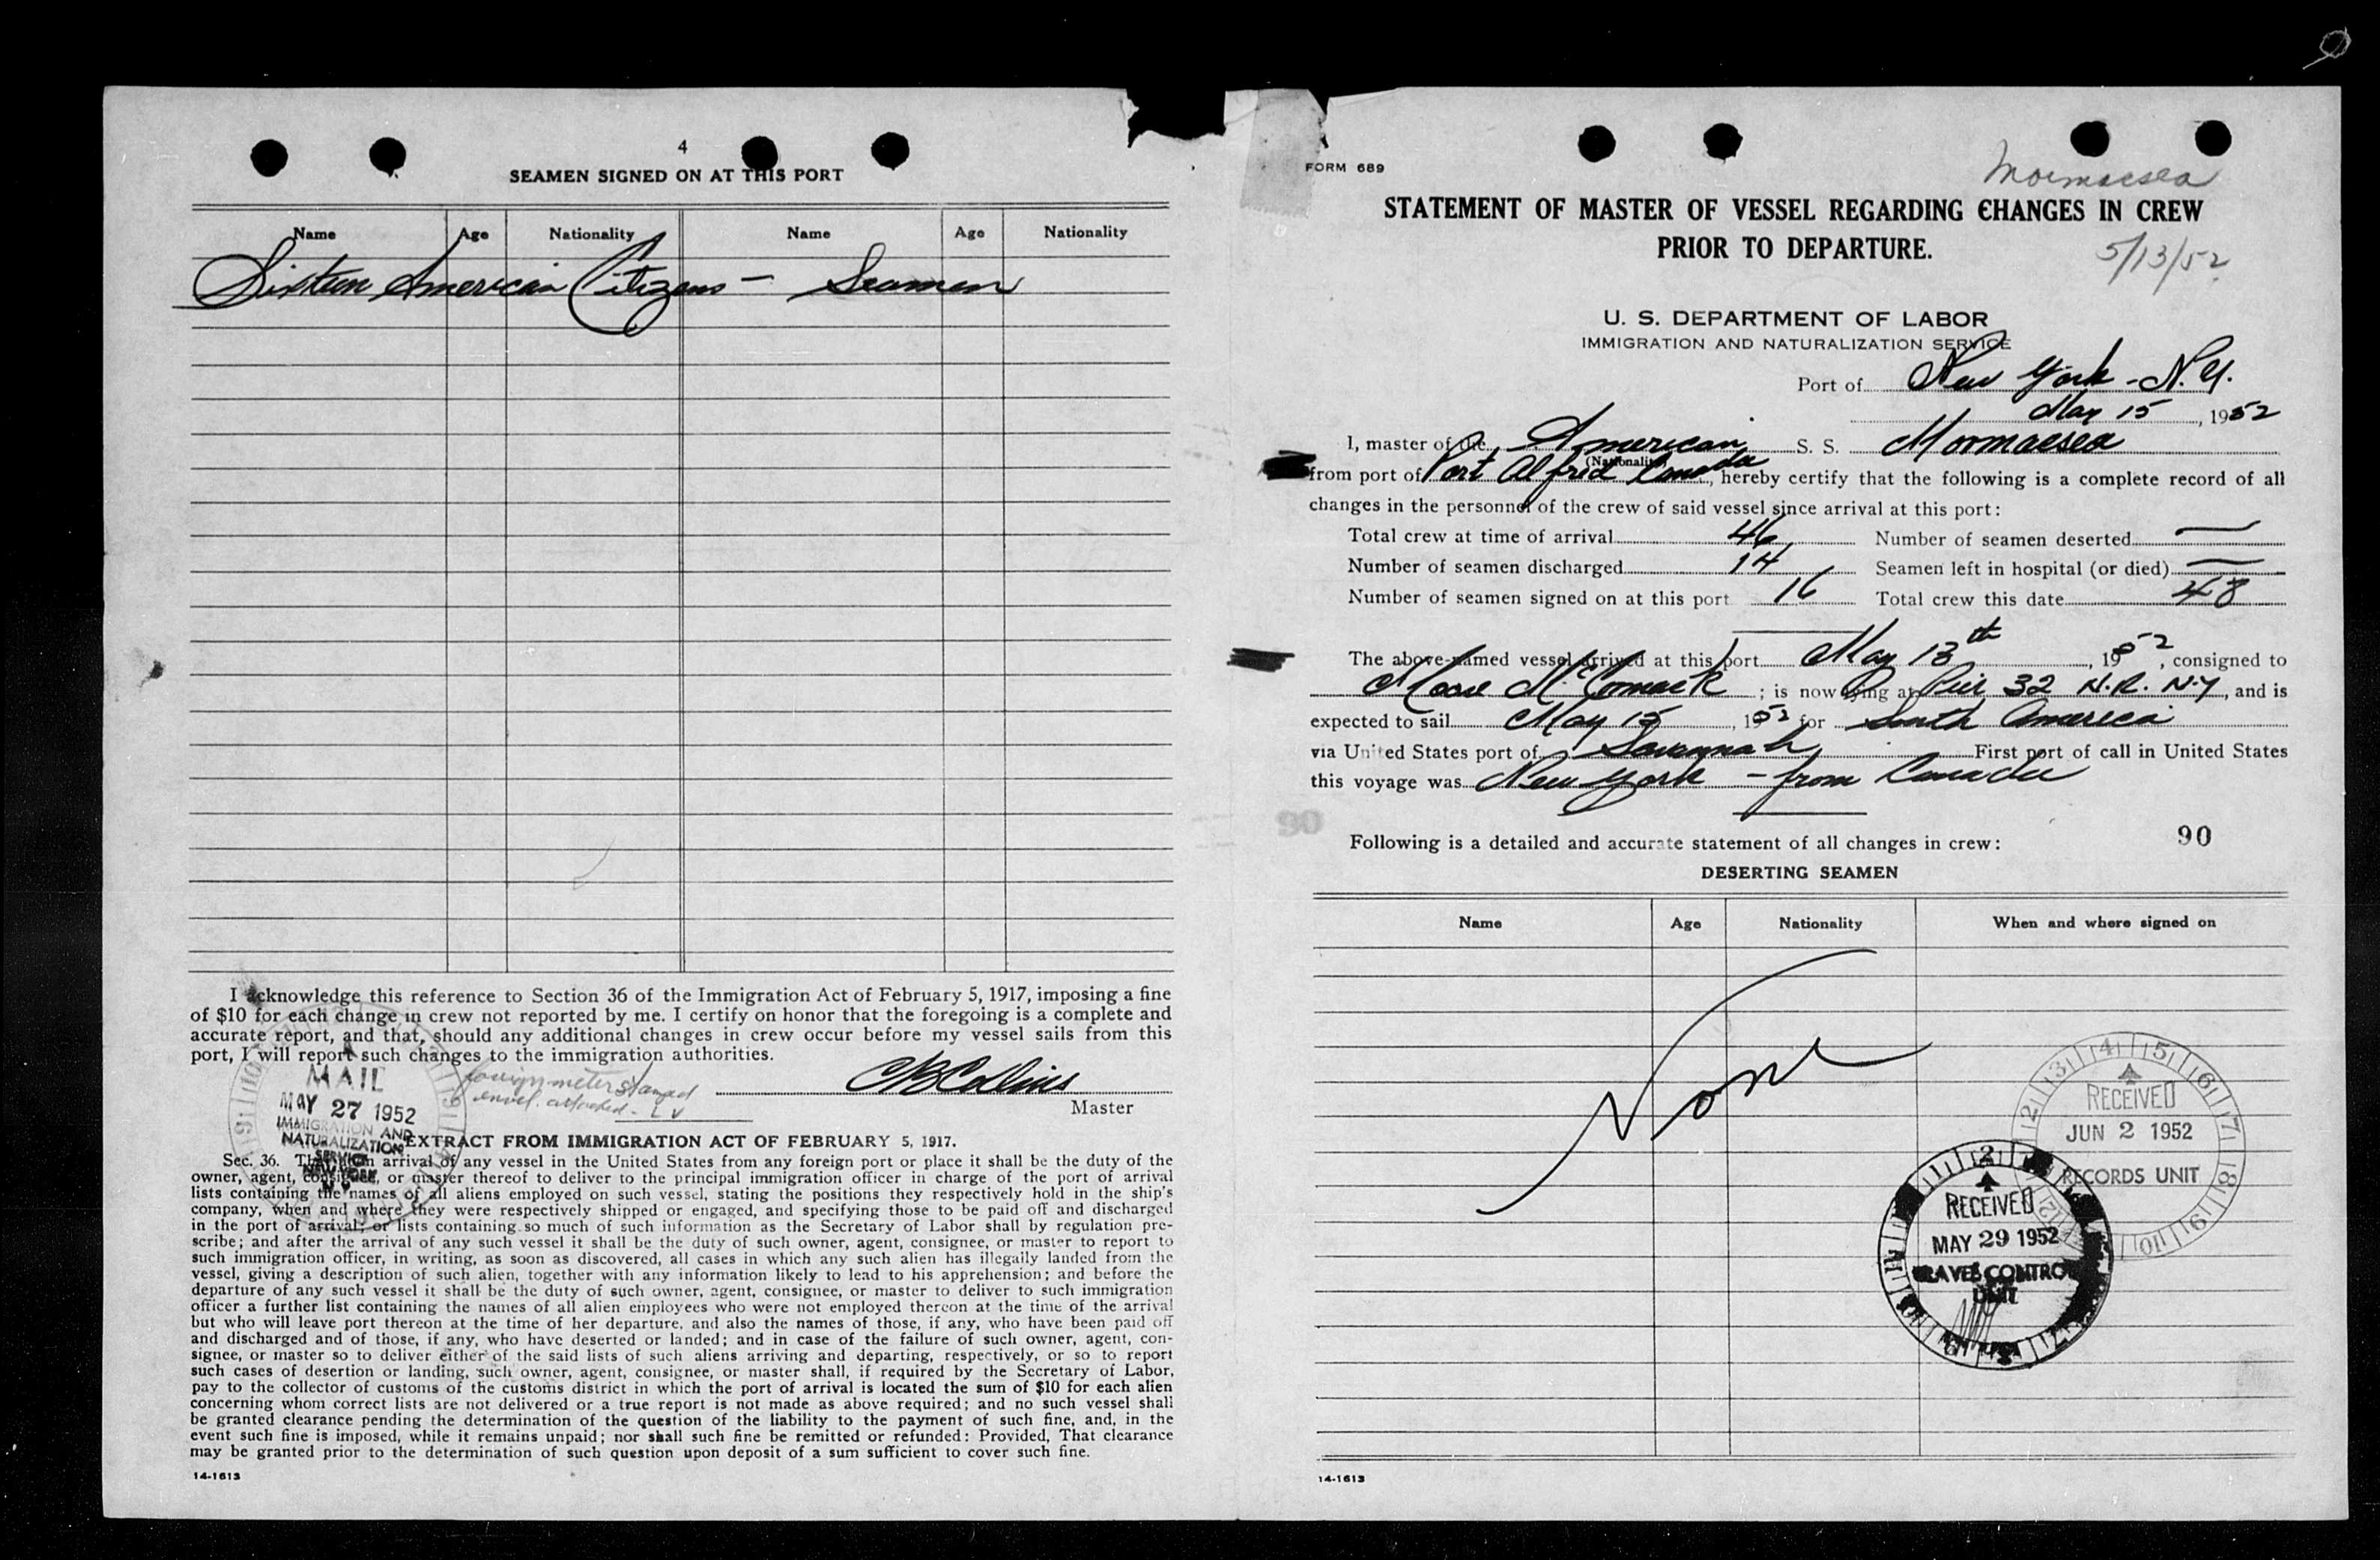 4
SEAMEN SIGNED ON AT THIS PORT
Name Age Nationality Name Age Nationality
Sixteen American Citizens - Seamen
I acknowledge this reference to Section 36 of the Immigration Act of February 5, 1917, imposing a fine
of $10 for each change in crew not reported by me. I certify on honor that the foregoing is a complete and
accurate report, and that, should any additional changes in crew occur before my vessel sails from this
port, I will report such changes to the immigration authorities.
foreign meter stamped
envel. attached -
CB Collins
Master
MAIL
MAY 27 1952
IMMIGRATION AND
NATURALIZATION
SERVICE
NEW YORK
N.Y.
EXTRACT FROM IMMIGRATION ACT OF FEBRUARY 5, 1917.
Sec. 36. That upon arrival of any vessel in the United States from any foreign port or place it shall be the duty of the
owner, agent, consignee, or master thereof to deliver to the principal immigration officer in charge of the port of arrival
lists containing the names of all aliens employed on such vessel, stating the positions they respectively hold in the ship's
company, when and where they were respectively shipped or engaged, and specifying those to be paid off and discharged
in the port of arrival; or lists containing so much of such information as the Secretary of Labor shall by regulation pre-
scribe; and after the arrival of any such vessel it shall be the duty of such owner, agent, consignee, or master to report to
such immigration officer, in writing, as soon as discovered, all cases in which any such alien has illegally landed from the
vessel, giving a description of such alien, together with any information likely to lead to his apprehension; and before the
departure of any such vessel it shall be the duty of such owner, agent, consignee, or master to deliver to such immigration
officer a further list containing the names of all alien employees who were not employed thereon at the time of the arrival
but who will leave port thereon at the time of her departure, and also the names of those, if any, who have been paid off
and discharged and of those, if any, who have deserted or landed; and in case of the failure of such owner, agent, con-
signee, or master so to deliver either of the said lists of such aliens arriving and departing, respectively, or so to report
such cases of desertion or landing, such owner, agent, consignee, or master shall, if required by the Secretary of Labor,
pay to the collector of customs of the customs district in which the port of arrival is located the sum of $10 for each alien
concerning whom correct lists are not delivered or a true report is not made as above required; and no such vessel shall
be granted clearance pending the determination of the question of the liability to the payment of such fine, and, in the
event such fine is imposed, while it remains unpaid; nor shall such fine be remitted or refunded: Provided, That clearance
may be granted prior to the determination of such question upon deposit of a sum sufficient to cover such fine.
14-1613
FORM 689
Mormacsea
STATEMENT OF MASTER OF VESSEL REGARDING CHANGES IN CREW
PRIOR TO DEPARTURE.
5/13/52
U. S. DEPARTMENT OF LABOR
IMMIGRATION AND NATURALIZATION SERVICE
Port of New York - N.Y.
May 15, 1952
I, master of the American S. S. Mormacsea
(Nationality)
from port of Port Alfred Canada, hereby certify that the following is a complete record of all
changes in the personnel of the crew of said vessel since arrival at this port:
Total crew at time of arrival 46 Number of seamen deserted —
Number of seamen discharged 14 Seamen left in hospital (or died) —
Number of seamen signed on at this port 16 Total crew this date 48
The above-named vessel arrived at this port May 13th, 1952, consigned to
Moore McCormack; is now lying at Pier 32 N.R. N.Y, and is
expected to sail May 15, 1952 for South America
via United States port of Savannah First port of call in United States
this voyage was New York - from Canada
90
Following is a detailed and accurate statement of all changes in crew:
90
DESERTING SEAMEN
Name Age Nationality When and where signed on
None
RECEIVED
JUN 2 1952
RECORDS UNIT
RECEIVED
MAY 29 1952
CONTROL
UNIT
14-1613